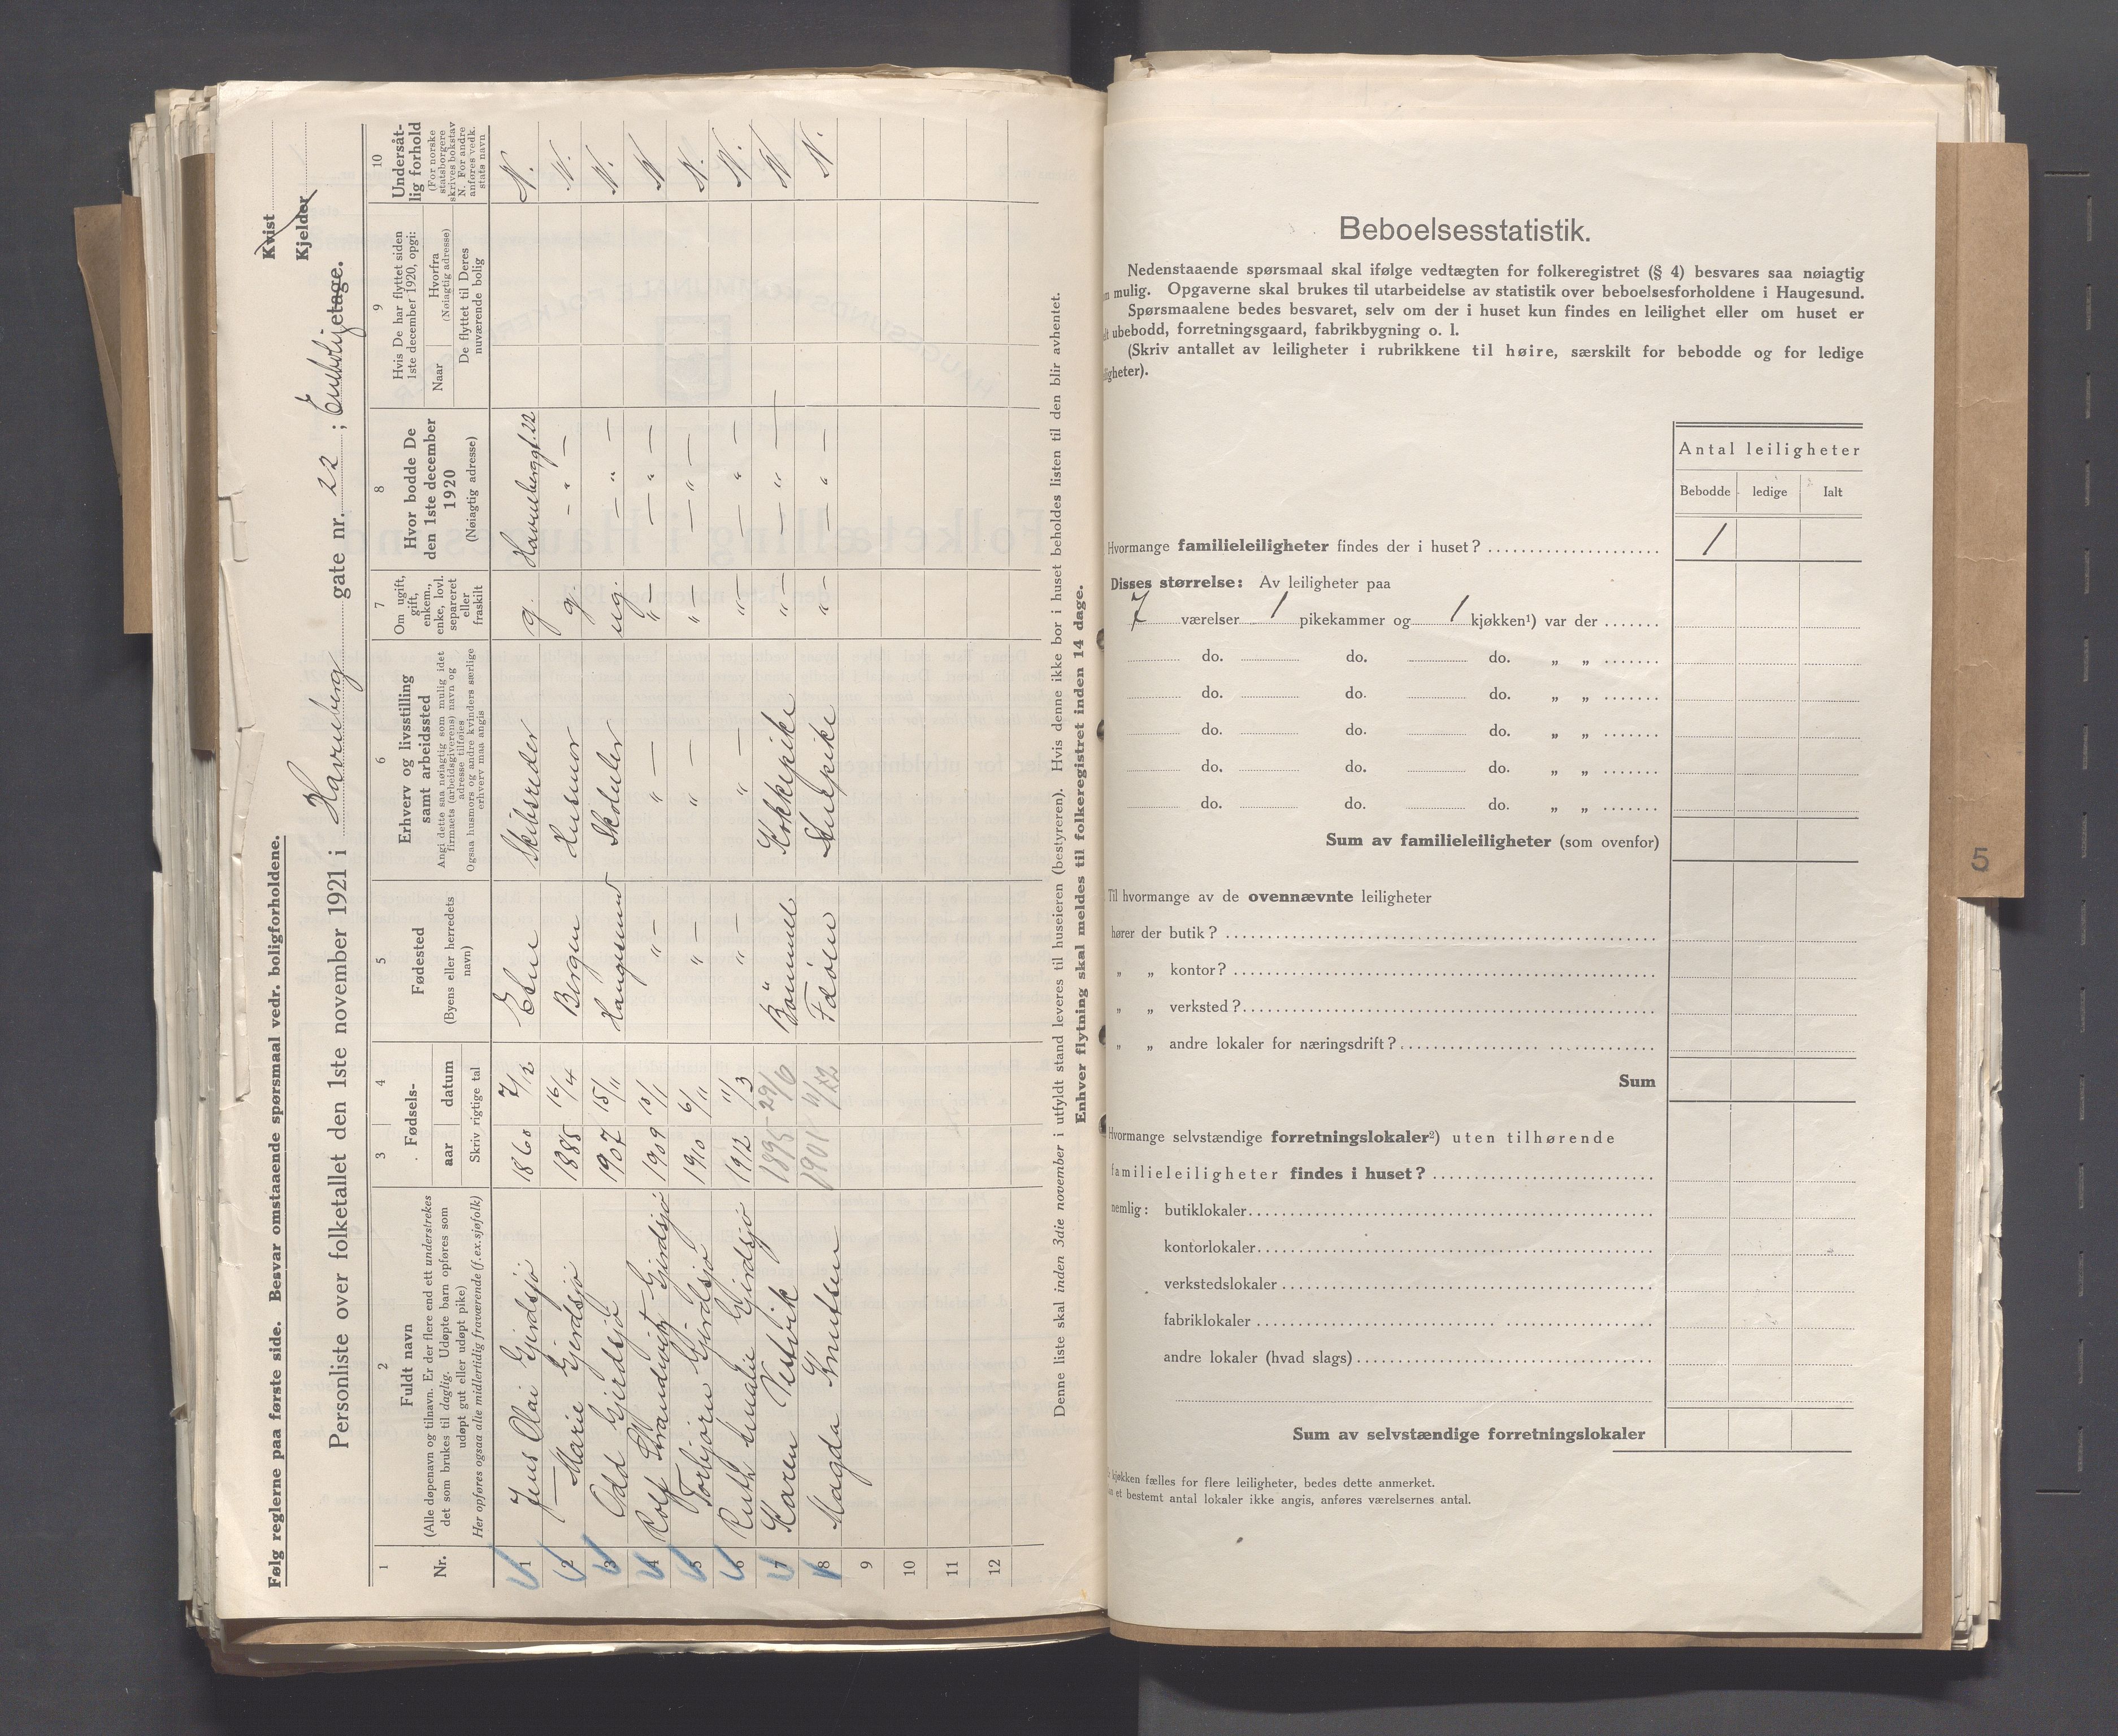 Følg reglerne paa første side. Besvar omstaaende spørsmaal vedr. boligforholdene.
Kvist
Kjelder
Personliste over folketallet den 1ste november 1921 i Havreberg gate nr. 22; Eneboligetage.
1
2
3
4
5
6
7
8
9
10
Nr.
Fuldt navn
(Alle døpenavn og tilnavn. Er der flere end ett understrekes
det som brukes til daglig. Udøpte barn opføres som
udøpt gut eller udøpt pike)
Her opføres ogsaa alle midlertidig fraværende (f.ex. sjøfolk)
Fødsels-
aar
datum
Skriv rigtige tal
Fødested
(Byens eller herredets
navn)
Erhverv og livsstilling
samt arbeidssted
Angi dette saa nøiagtig som mulig idet
firmaets (arbeidsgiverens) navn og
adresse tilføies
Ogsaa husmors og andre kvinders særlige
erhverv maa angis
Om ugift,
gift,
enkem.,
enke, lovl.
separeret
eller
fraskilt
Hvor bodde De
den 1ste december
1920
(Nøiagtig adresse)
Hvis De har flyttet siden
1ste december 1920, opgi:
Naar
Hvorfra
(Nøiagtig adresse)
De flyttet til Deres
nuværende bolig
Undersåt-
lig forhold
(For norske
statsborgere
skrives bokstav
N. For andre
anføres vedk.
stats navn
1 Jens Olai Gjerdsjø 1860 7/12 Etne Skibsreder g. Havreberggt. 22 N.
2 — Marie Gjerdsjø 1885 16/4 Bergen Husmor g. – " — N.
3 Odd Gjerdsjø 1907 15/11 Haugesund Skoleelev ug. — " — N.
4 Rolf Strandwitz Gjerdsjø 1909 10/11 "— " — "— — " — N
5 Torbjørn Gjerdsjø 1910 6/11 " — " — "— — " — N.
6 Ruth Amalie Gjerdsjø 1912 11/3 " — " — "— — " — N.
7 Karen Vestvik 1895 29/6 Bömmel Kokkepike "— — " — N
8 Magda Knutsen 1901 Fdölen Stuepike "— — " — N.
9
10
11
12
Denne liste skal inden 3die november i utfyldt stand leveres til huseieren (bestyreren). Hvis denne ikke bor i huset beholdes listen til den blir avhentet.
Enhver flytning skal meldes til folkeregistret inden 14 dage.
Beboelsesstatistik.
Nedenstaaende spørsmaal skal ifølge vedtægten for folkeregistret (§ 4) besvares saa nøiagtig
mulig. Opgaverne skal brukes til utarbeidelse av statistik over beboelsesforholdene i Haugesund.
Spørsmaalene bedes besvaret, selv om der i huset kun findes en leilighet eller om huset er
ubebodd, forretningsgaard, fabrikbygning o. l.
(Skriv antallet av leiligheter i rubrikkene til høire, særskilt for bebodde og for ledige
igheter).
Antal leiligheter
Bebodde ledige Ialt
Hvormange familieleiligheter findes der i huset? 1
Disses størrelse: Av leiligheter paa
7 værelser 1 pikekammer og 1 kjøkken¹) var der
do. do. do. „ „
do. do. do. „ „
do. do. do. „ „
do. do. do. „ „
do. do. do. „ „
Sum av familieleiligheter (som ovenfor)
5
Til hvormange av de ovennævnte leiligheter
hører der butik?
„ „ kontor?
„ „ verksted?
„ „ andre lokaler for næringsdrift?
Sum
Hvormange selvstændige forretningslokaler²) uten tilhørende
familieleiligheter findes i huset?
nemlig: butiklokaler
kontorlokaler
verkstedslokaler
fabriklokaler
andre lokaler (hvad slags)
Sum av selvstændige forretningslokaler
kjøkken fælles for flere leiligheter, bedes dette anmerket.
et bestemt antal lokaler ikke angis, anføres værelsernes antal.